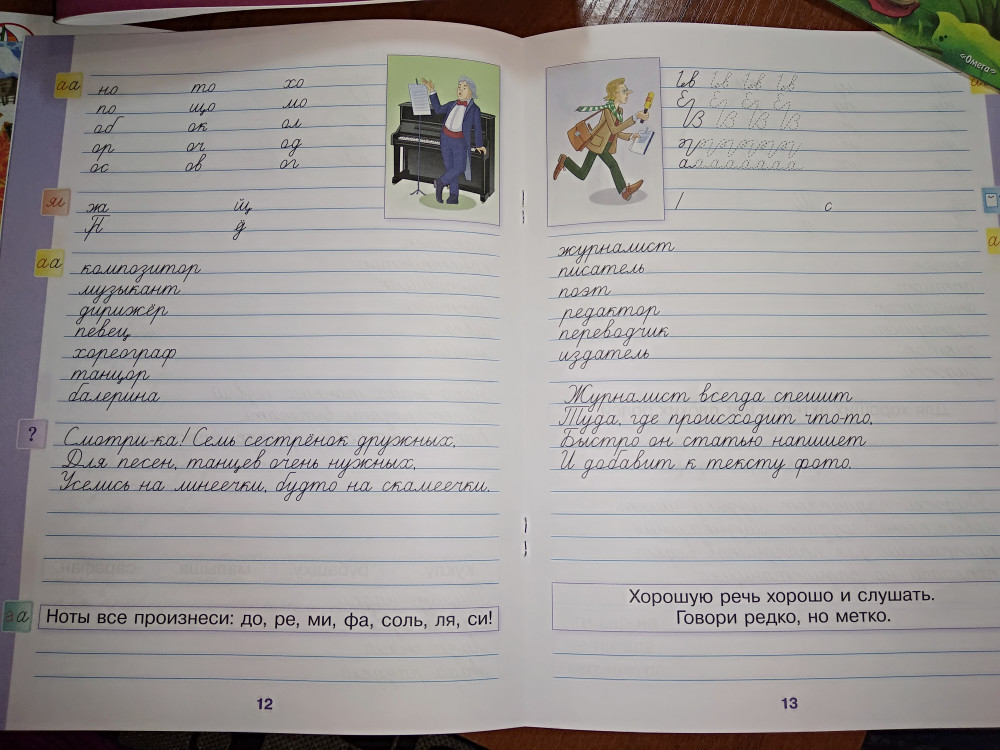 аа
но то хо
по що мо
об ок ол
ор оч од
ос ов ог
жа йц
аа
композитор
музыкант
дирижёр
певец
хореограф
танцор
балерина
?
Смотри-ка! Семь сестрёнок дружных,
Для песен, танцев очень нужных,
Уселись на линеечки, будто на скамеечки.
Ноты все произнеси: до, ре, ми, фа, соль, ля, си!
12
«Омега»
а
с
журналист
писатель
поэт
редактор
переводчик
издатель
Журналист всегда спешит
Туда, где происходит что-то,
Быстро он статью напишет
И добавит к тексту фото.
Хорошую речь хорошо и слушать.
Говори редко, но метко.
13